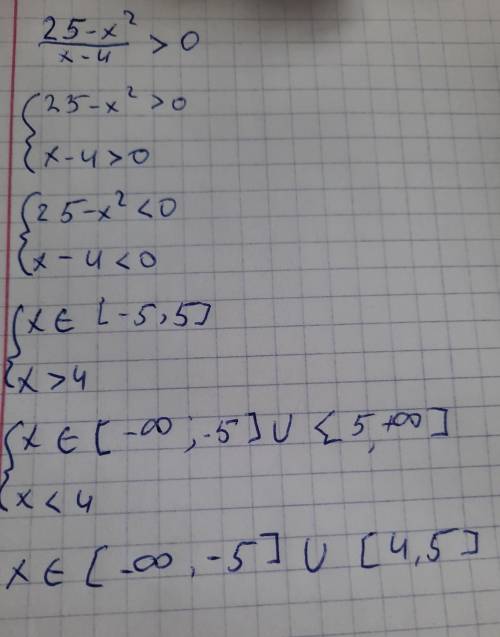 25-x²/x-4 > 0
{25-x²>0
{x-4>0
{25-x²<0
{x-4<0
{x∈[-5,5]
{x>4
{x∈[-∞;-5]∪[5,+∞]
{x<4
x∈[-∞,-5]∪[4,5]